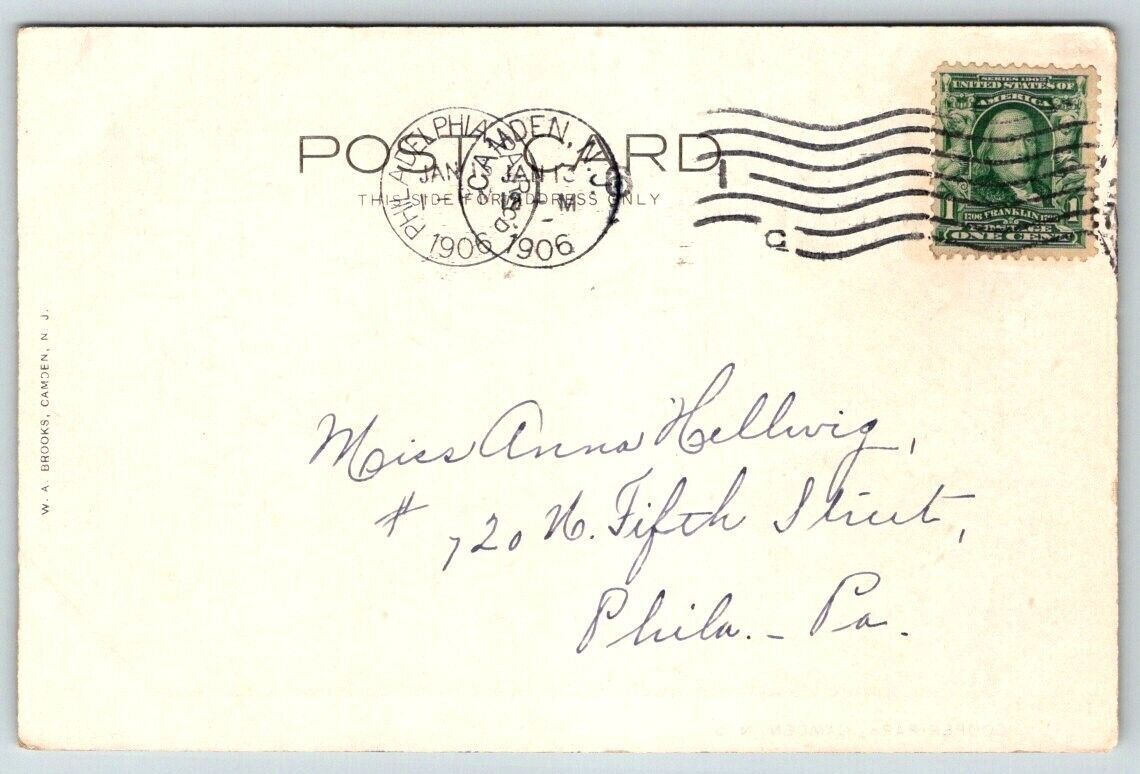 POST CARD
THIS SIDE FOR ADDRESS ONLY
PHILADELPHIA
JAN
1906
CAMDEN, N.J.
JAN 13
M
1906
I
C
SERIES 1902
UNITED STATES OF
AMERICA
1 1706 FRANKLIN 1790 1
POSTAGE
ONE CENT
W. A. BROOKS, CAMDEN, N. J.
Miss Anna Hellwig,
# 720 N. Fifth Street,
Phila. - Pa.
COOPER PARK, CAMDEN, N. J.